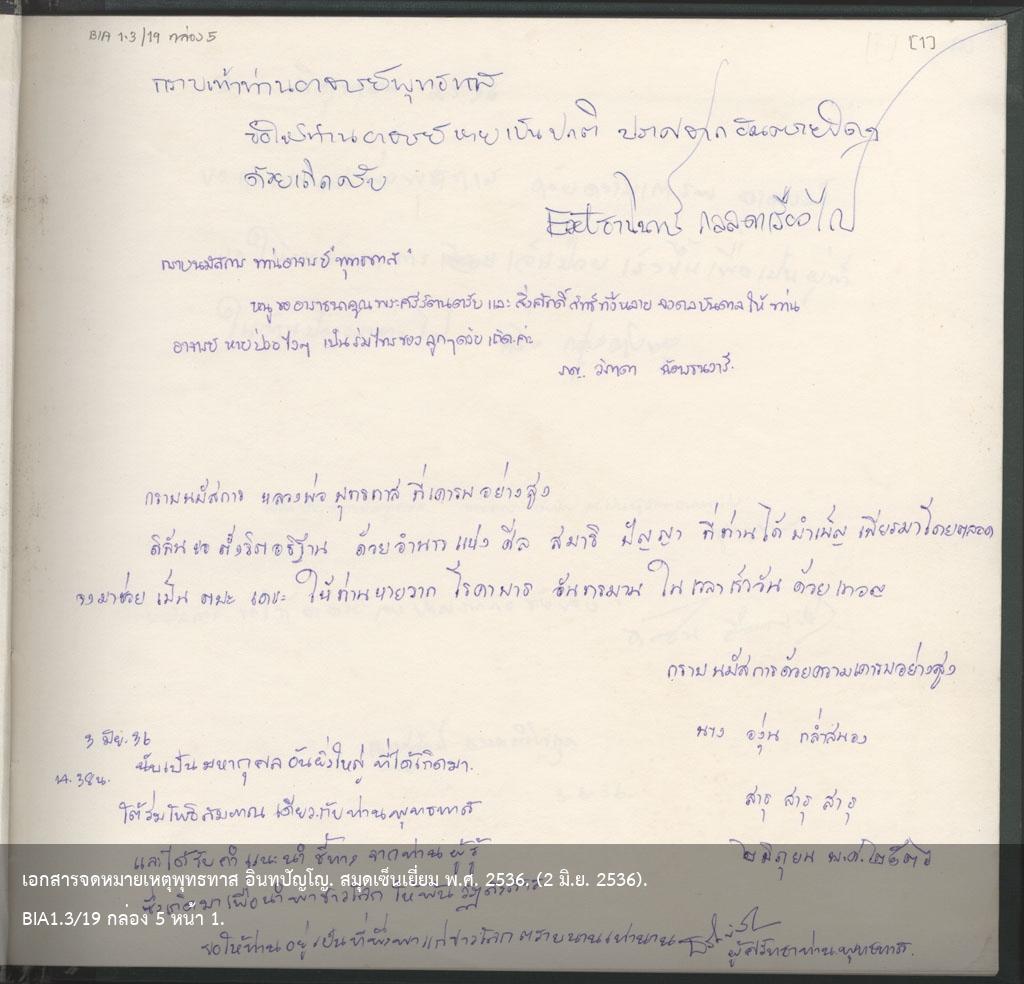 BIA 1.3/19 กล่อง 5
[1]
กราบเท้าท่านอาจารย์พุทธทาส
ขอให้ท่านอาจารย์หายเป็นปกติ ปราศจาก
ด้วยเถิดครับ
กราบนมัสการ ท่านอาจารย์ พุทธทาส
หนูขออาราธนาคุณพระศรีรัตนตรัย และ สิ่งศักดิ์สิทธิ์ทั้งหลาย จงดลบันดาลให้ ท่าน
อาจารย์ หายป่วยไวๆ เป็นร่มไทรของลูกๆด้วย เถิดค่ะ
กราบนมัสการ หลวงพ่อ พุทธทาส ที่เคารพอย่างสูง
ดิฉันขอ ตั้งจิตอธิฐาน ด้วยอำนาจแห่ง ศีล สมาธิ ปัญญา ที่ท่านได้ บำเพ็ญ เพียรมาโดยตลอด
จงมาช่วย เป็น ตบะ เดชะ ให้ท่านหายจาก โรคาพาธ อันทรมาน ในเวลาเร็ววัน ด้วยเทอญ
กราบนมัสการด้วยความเคารพอย่างสูง
นาง องุ่น กล่ำสนอง
สาธุ สาธุ สาธุ
๒ มิถุนายน พ.ศ. ๒๕๓๖
3 มิย. 36
นับเป็นมหากุศลอันยิ่งใหญ่ ที่ได้เกิดมา.
ใต้ร่มโพธิสมภาร เดียวกับท่านพุทธทาส
และได้รับคำแนะนำ ชี้ทาง จากท่าน ผู้รู้
ซึ่งเกิดมาเพื่อนำพาชาวโลก ให้พ้น
ขอให้ท่านอยู่เป็นที่พึ่งพาแก่ชาวโลก ตราบนานเท่านาน
ผู้ศรัทธาท่านพุทธทาส.
เอกสารจดหมายเหตุพุทธทาส อินทปัญโญ. สมุดเซ็นเยี่ยม พ.ศ. 2536. (2 มิ.ย. 2536).
BIA1.3/19 กล่อง 5 หน้า 1.